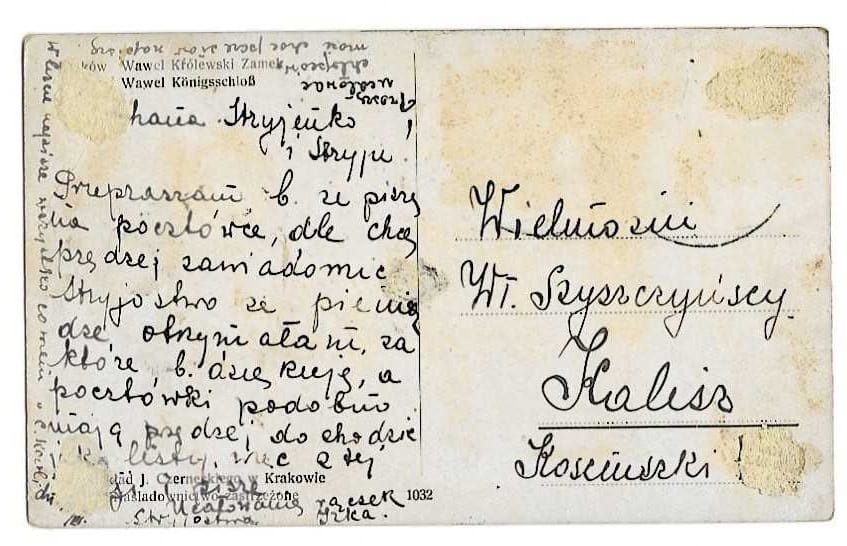 ków Wawel Królewski Zamek
Wawel Königsschloß
Stryjenko
i Stryju!
Przepraszam b. że piszę
na pocztówce, ale chcę
prędzej zawiadomić
Stryjostwo że pienią
dze otrzymałam, za
które b. dziękuję, a
pocztówki podobno
mają prędzej dochodzić
jak listy, więc
kład J. Czerneckiego w Krakowie
Naśladownictwo zastrzeżone
1032
Ucałowania rączek
Stryjostwa
Wielmożni
Wł. Szyszczyńscy.
Kalisz
Kościuszki 1